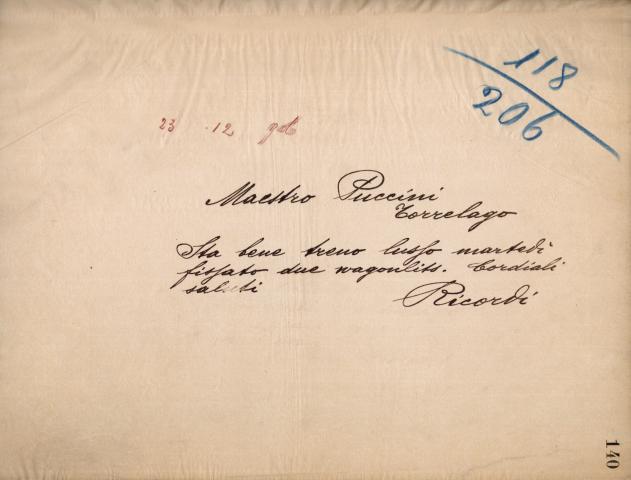 118
206
23 12
Maestro Puccini
Torrelago
Sta bene treno lusso martedì
fissato due wagonlits. Cordiali
saluti Ricordi
140